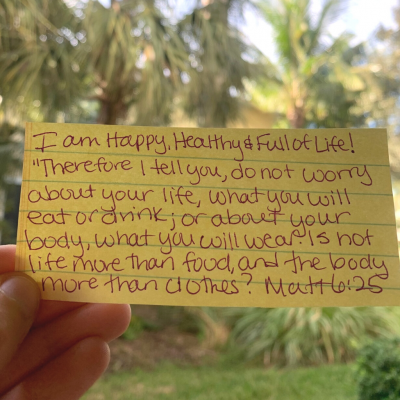 I am Happy, Healthy & Full of Life!
"Therefore I tell you, do not worry
about your life, what you will
eat or drink; or about your
body, what you will wear. Is not
life more than food, and the body
more than clothes? Matt 6:25